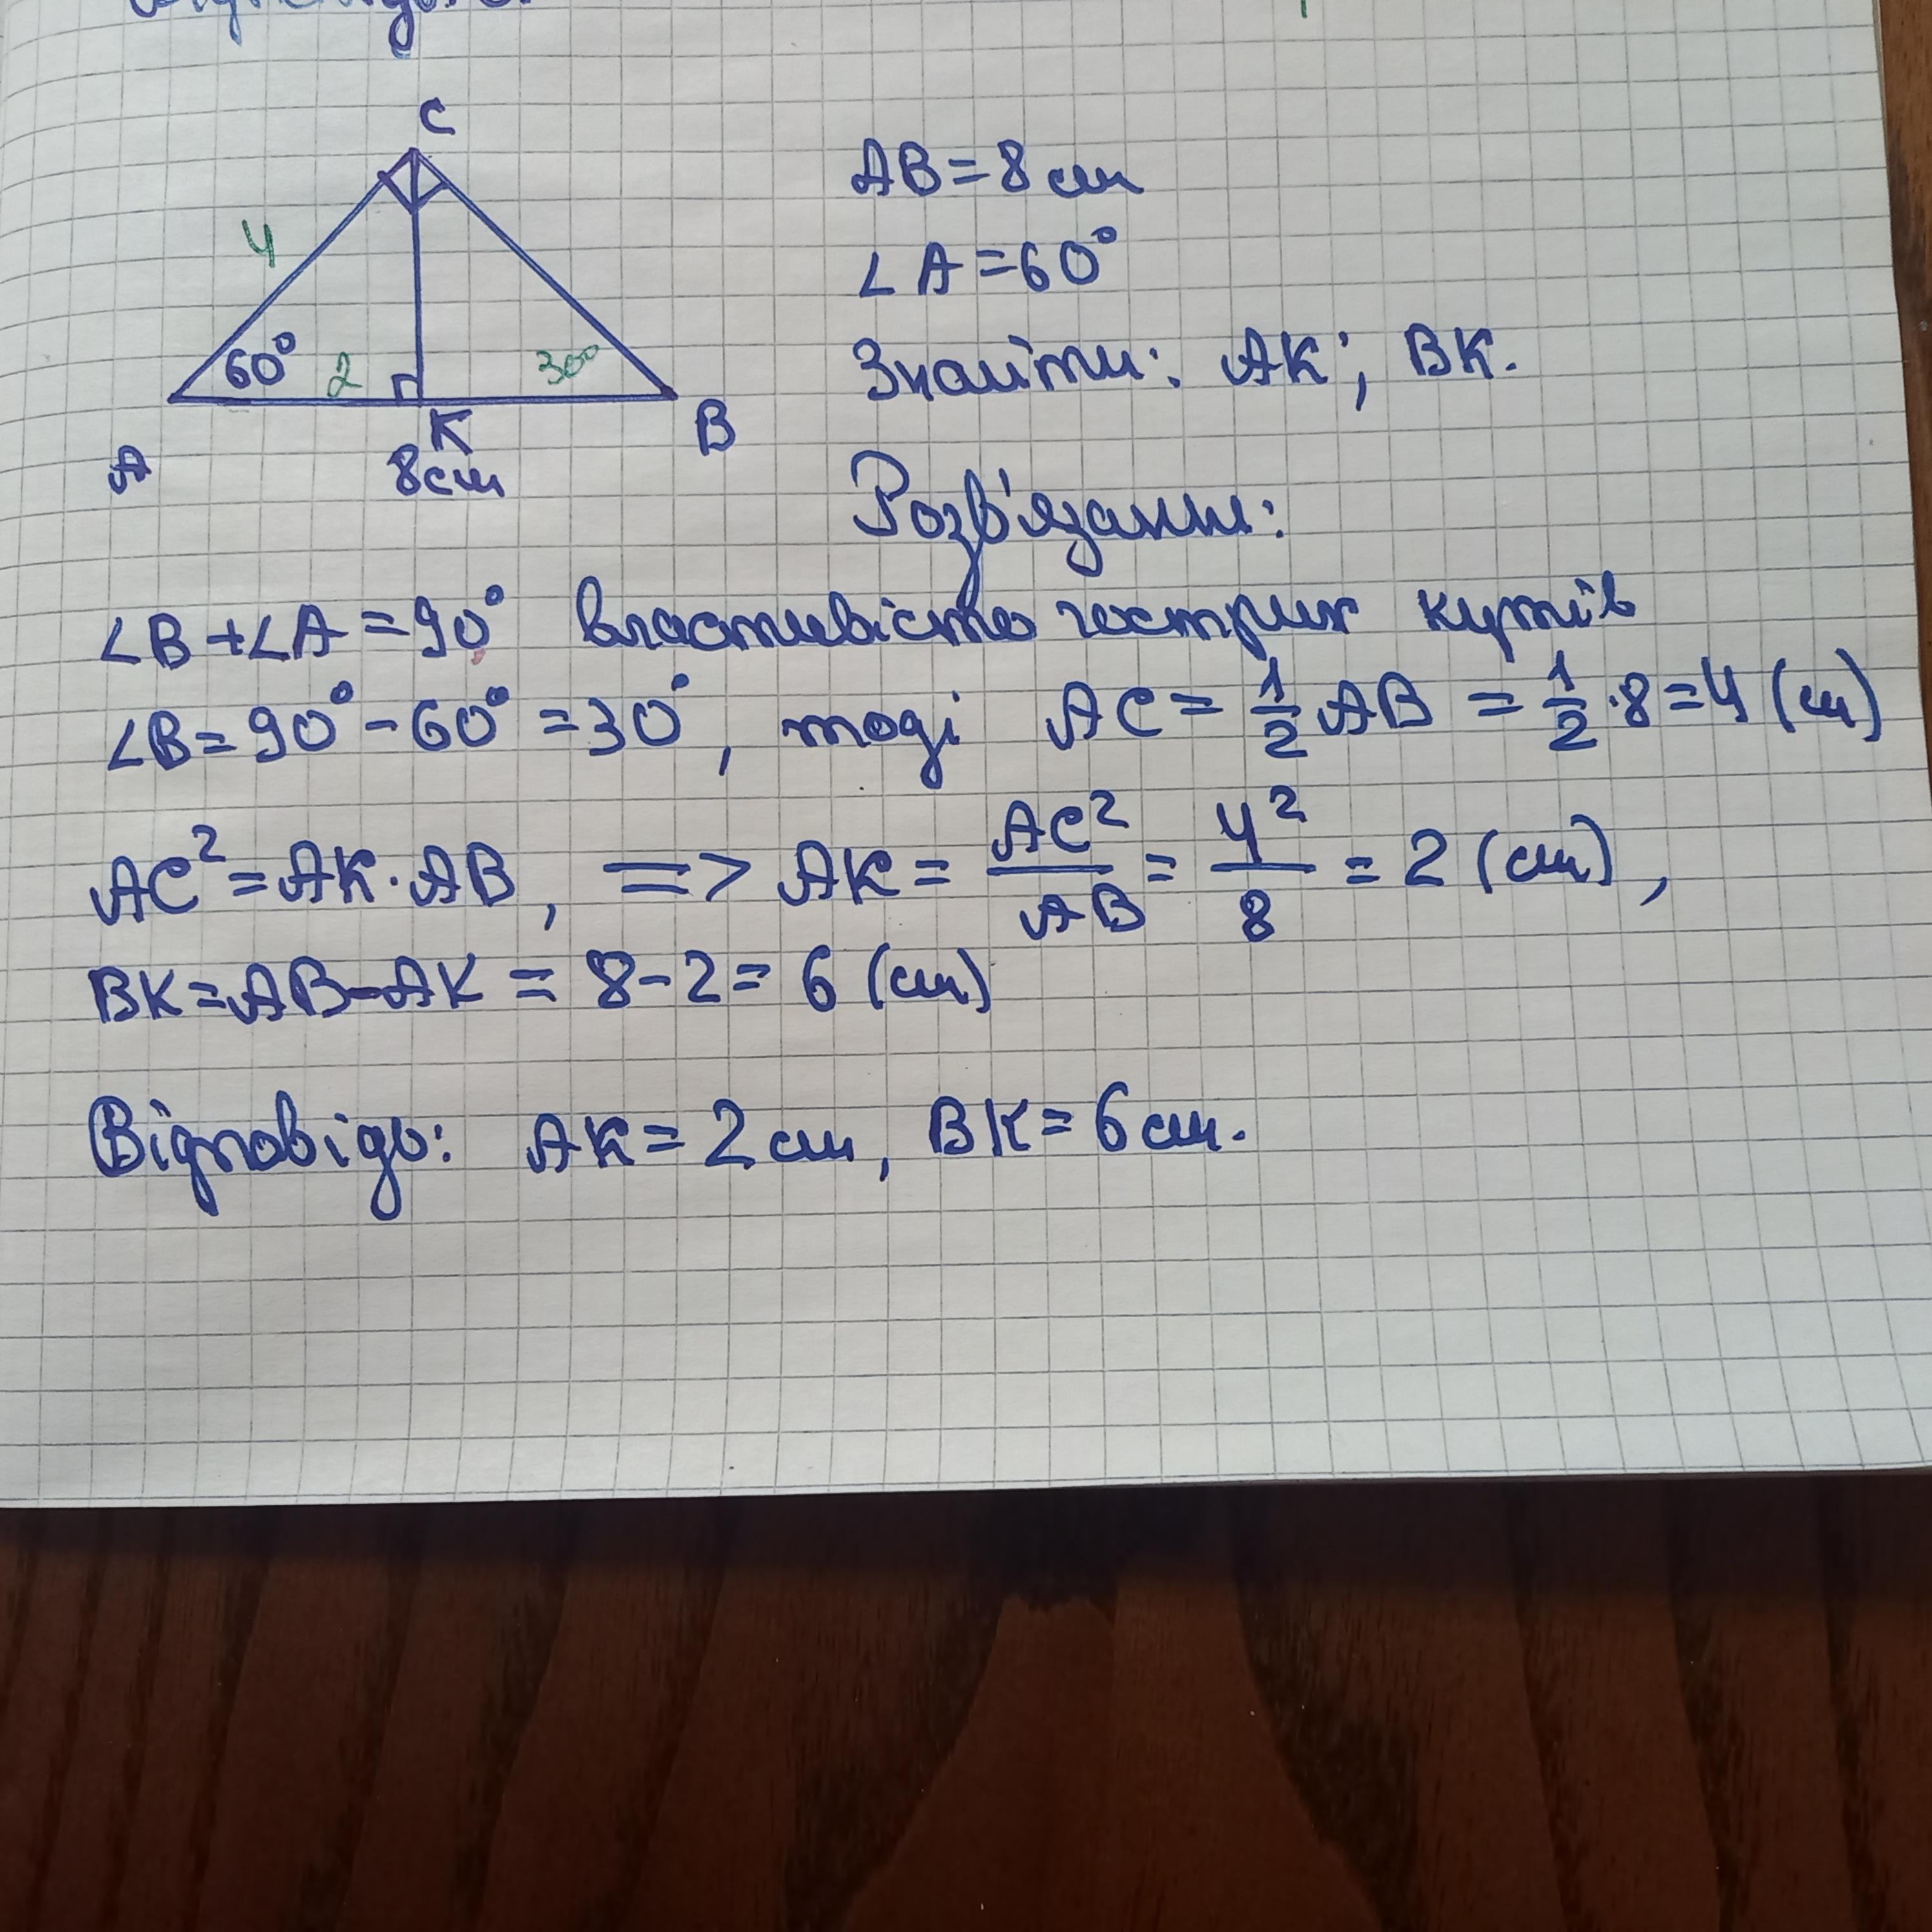 C
AB = 8 см
4
∠A = 60°
60° 2 30°
Знайти: AK; BK.
A K B
8 см
Розв'язання:
∠B + ∠A = 90° властивістю гострих кутів
∠B = 90° - 60° = 30°, тоді AC = 1/2 AB = 1/2 · 8 = 4 (см)
AC² = AK · AB, => AK = AC²/AB = 4²/8 = 2 (см),
BK = AB - AK = 8 - 2 = 6 (см)
Відповідь: AK = 2 см, BK = 6 см.